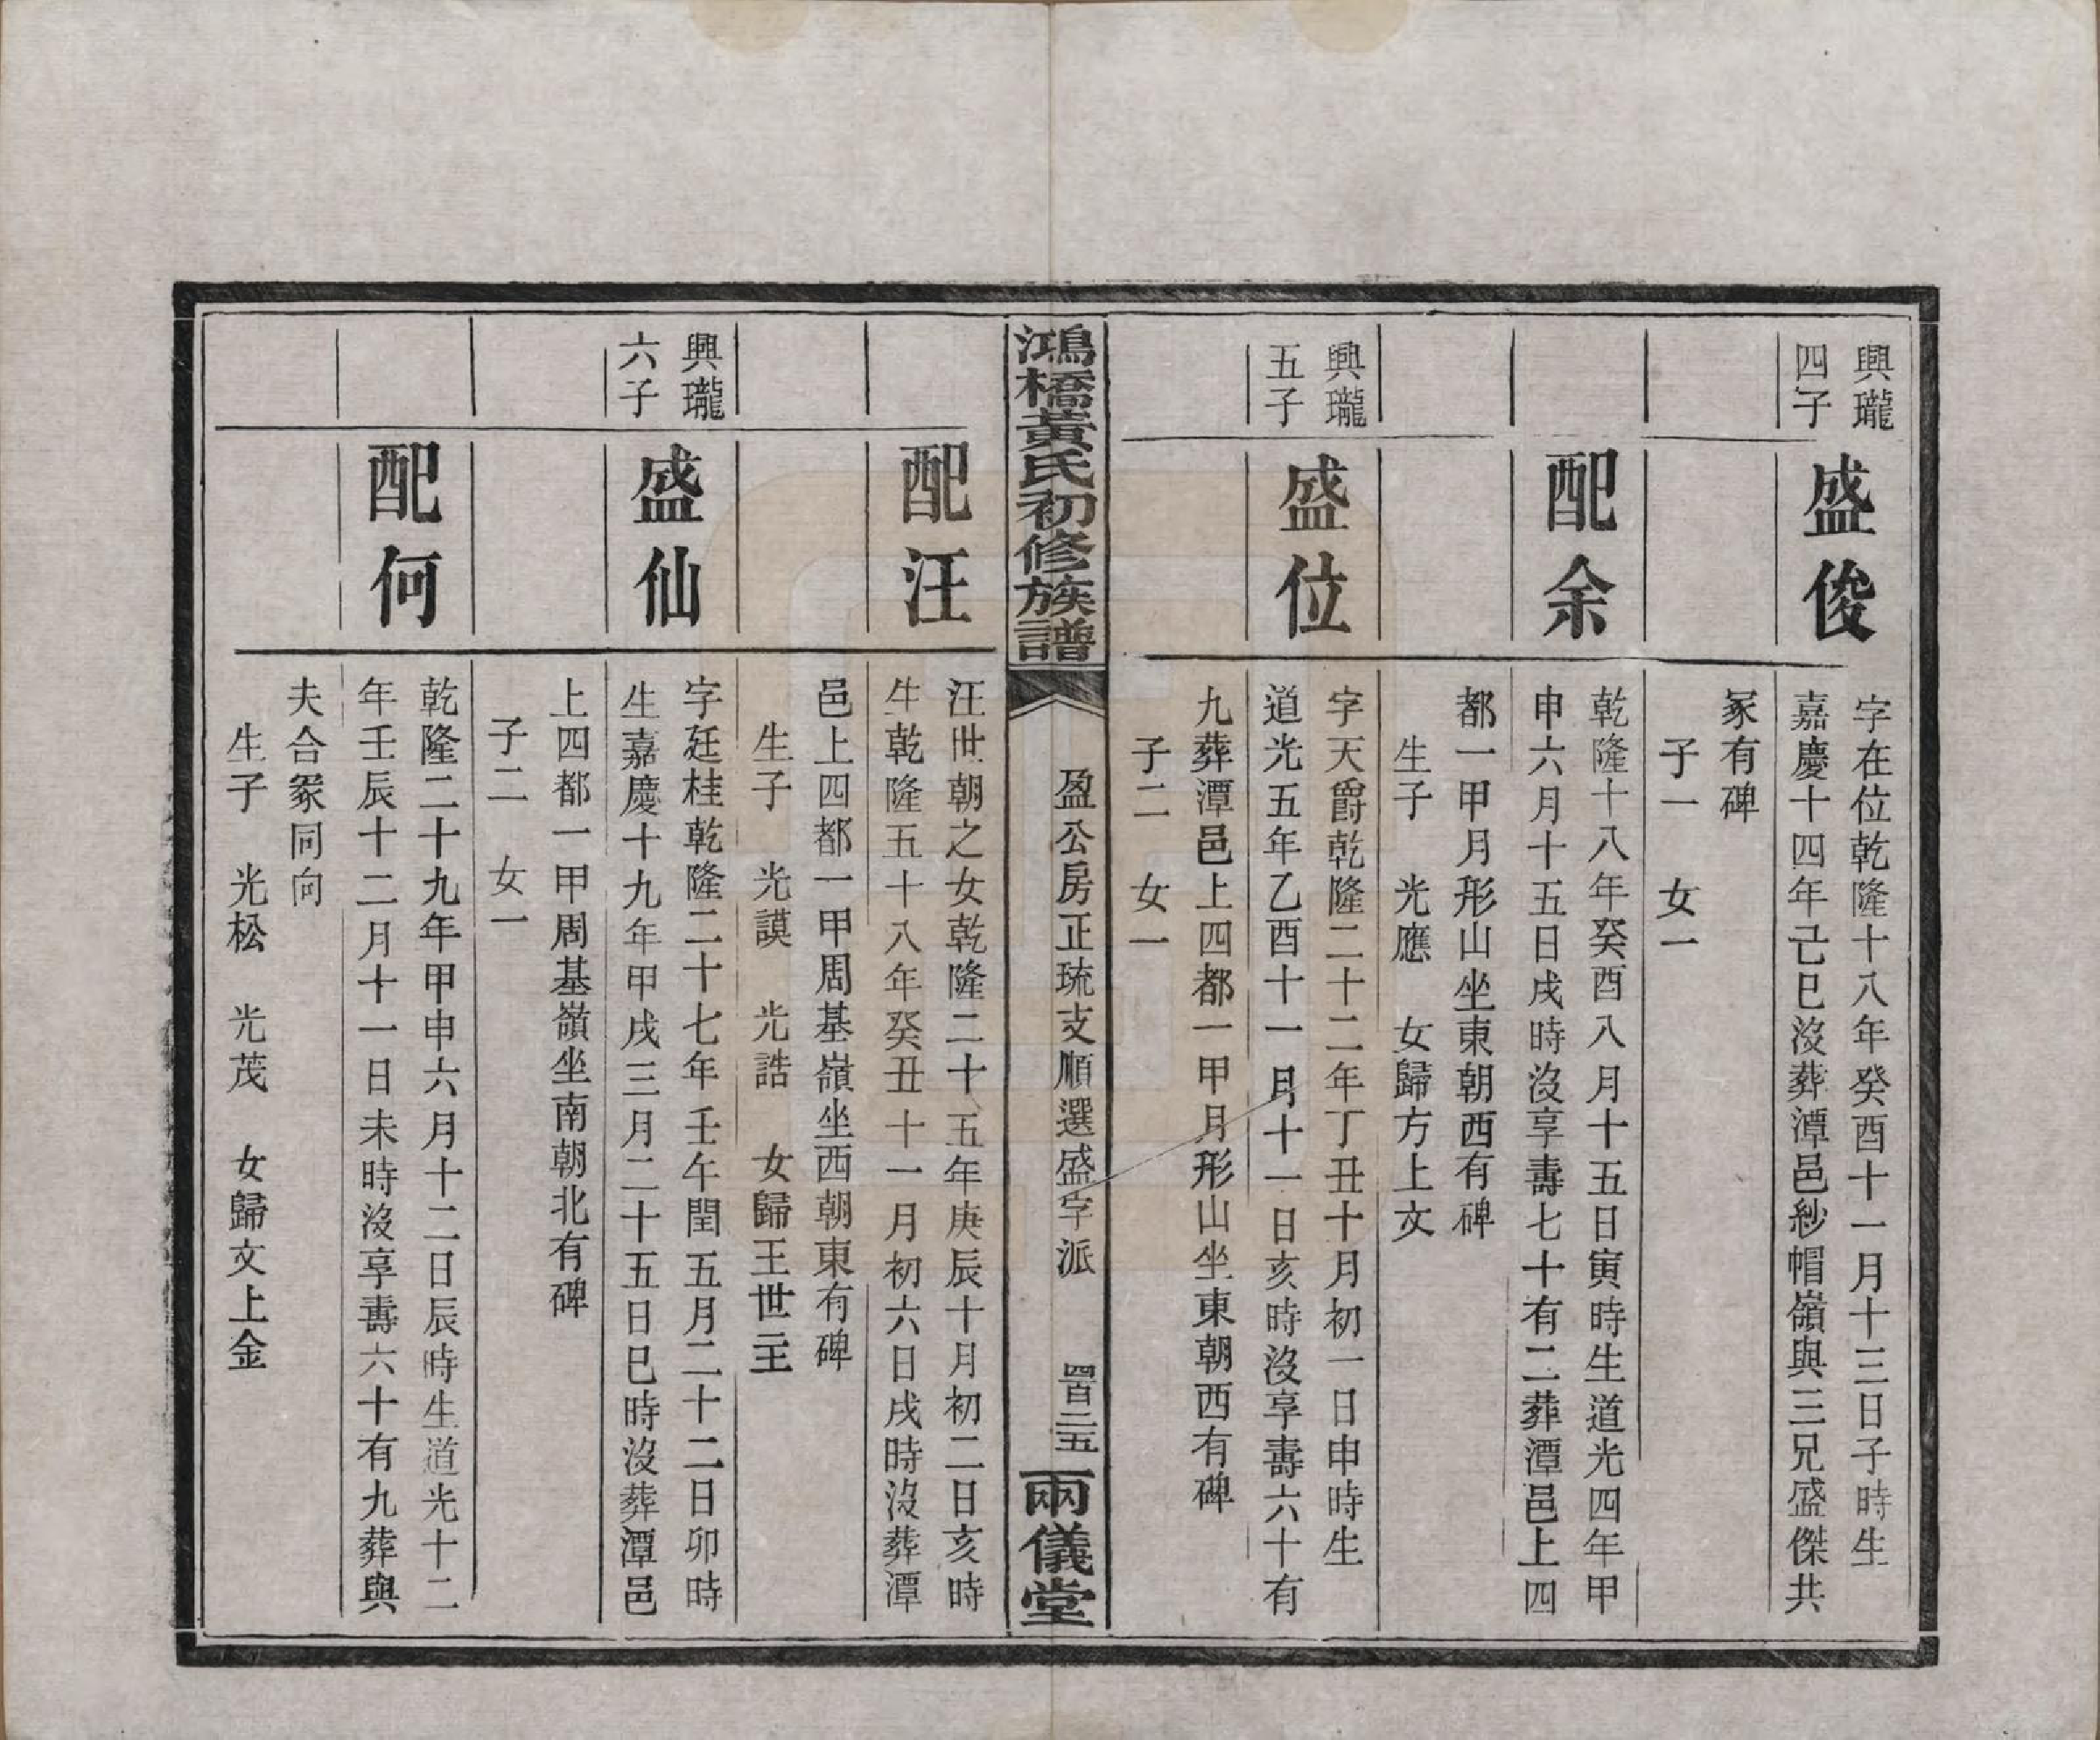 興瓏
四子
盛俊
字在位乾隆十八年癸酉十一月十三日子時生
嘉慶十四年己巳沒葬潭邑紗帽嶺與三兄盛傑共
冢有碑
子一　女一
配余
乾隆十八年癸酉八月十五日寅時生道光四年甲
申六月十五日戌時沒享壽七十有二葬潭邑上四
都一甲月形山坐東朝西有碑
生子　光應　女歸方上文
興瓏
五子
盛位
字天爵乾隆二十二年丁丑十月初一日申時生
道光五年乙酉十一月十一日亥時沒享壽六十有
九葬潭邑上四都一甲月形山坐東朝西有碑
子二　女一
鴻橋黃氏初修族譜
盈公房正琉支順選盛字派
四百二五
兩儀堂
配汪
汪世朝之女乾隆二十五年庚辰十月初二日亥時
生乾隆五十八年癸丑十一月初六日戌時沒葬潭
邑上四都一甲周基嶺坐西朝東有碑
生子　光謨　光誥　女歸王世三
興瓏
六子
盛仙
字廷桂乾隆二十七年壬午閏五月二十二日卯時
生嘉慶十九年甲戌三月二十五日巳時沒葬潭邑
上四都一甲周基嶺坐南朝北有碑
子二　女一
配何
乾隆二十九年甲申六月十二日辰時生道光十二
年壬辰十二月十一日未時沒享壽六十有九葬與
夫合冢同向
生子　光松　光茂　女歸文上金